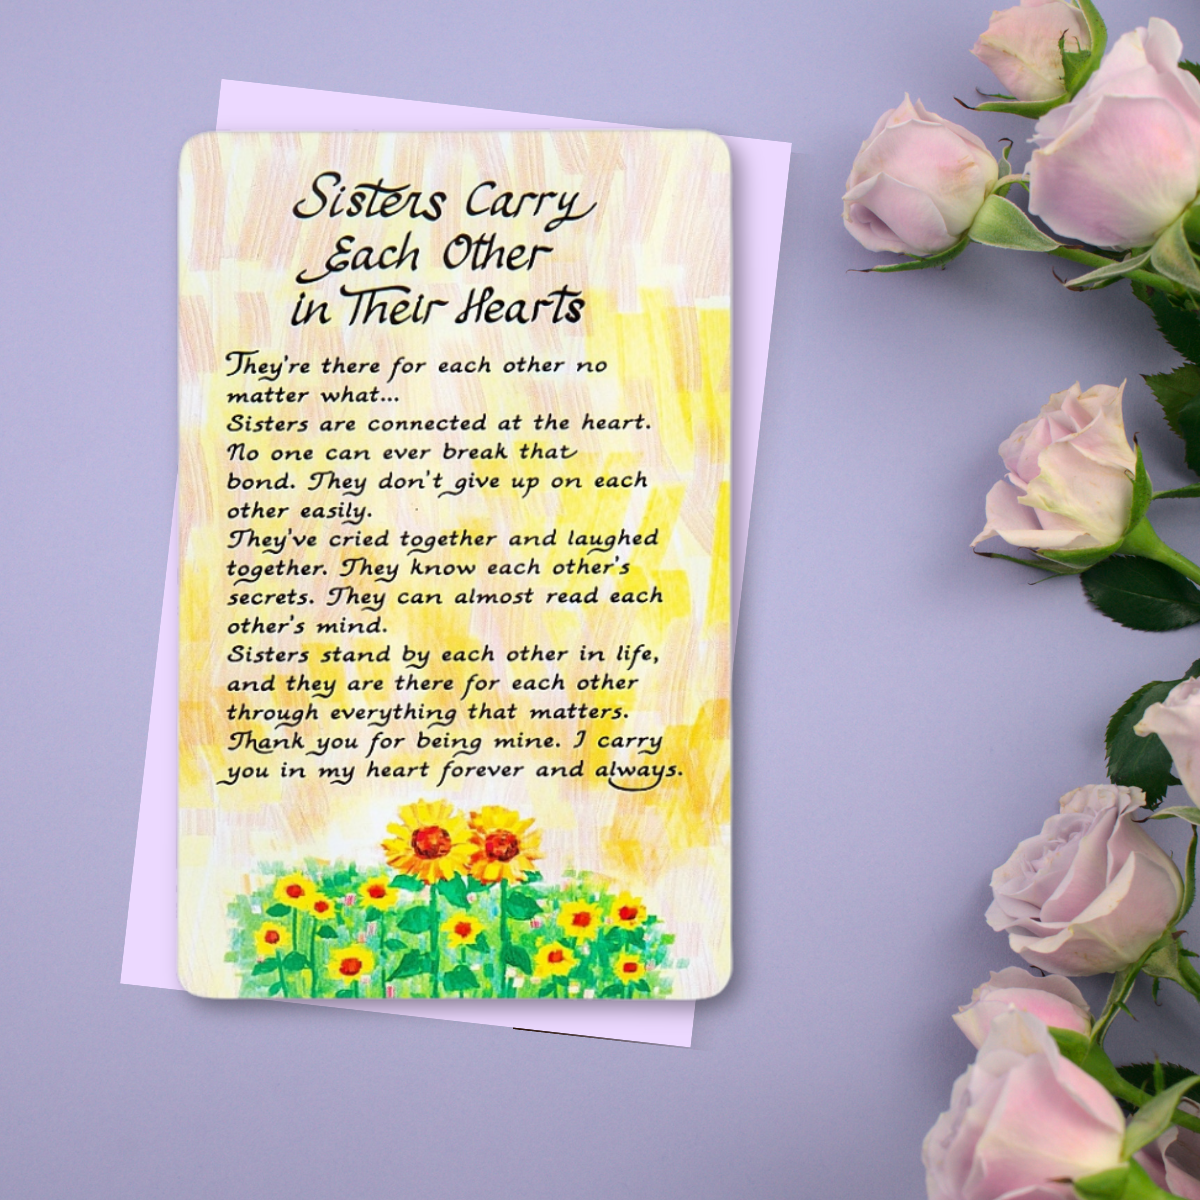 Sisters Carry
Each Other
in Their Hearts
They're there for each other no
matter what...
Sisters are connected at the heart.
No one can ever break that
bond. They don't give up on each
other easily.
They've cried together and laughed
together. They know each other's
secrets. They can almost read each
other's mind.
Sisters stand by each other in life,
and they are there for each other
through everything that matters.
Thank you for being mine. I carry
you in my heart forever and always.